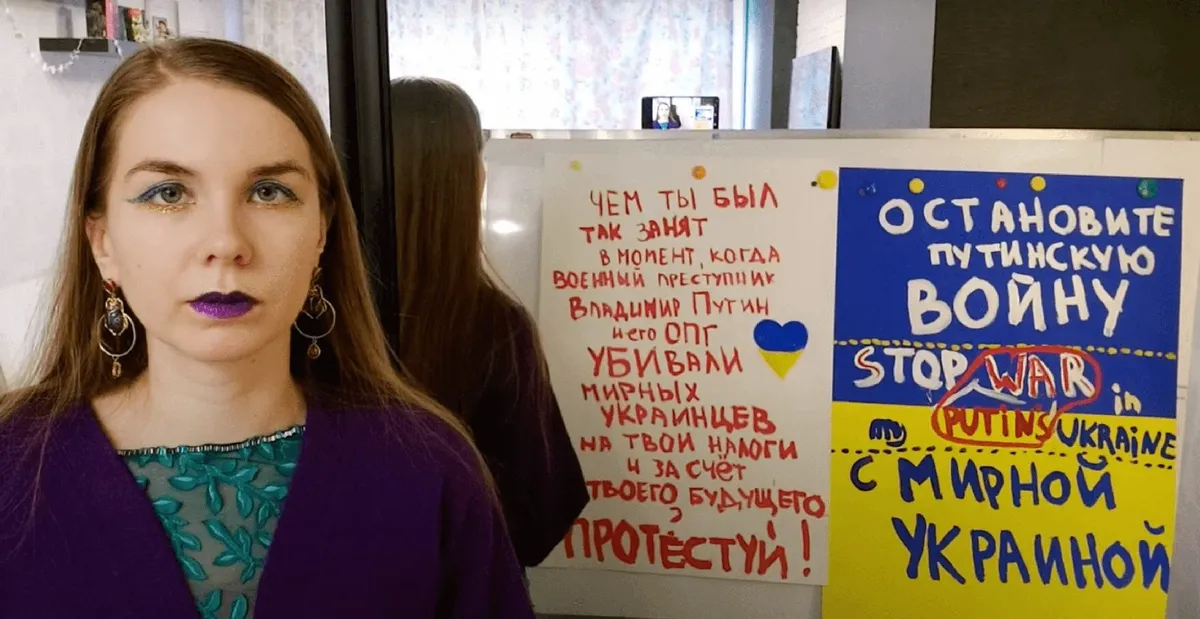 ЧЕМ ТЫ БЫЛ
ТАК ЗАНЯТ
В МОМЕНТ, КОГДА
ВОЕННЫЙ ПРЕСТУПНИК
ВЛАДИМИР ПУТИН
и его ОПГ
УБИВАЛИ
МИРНЫХ
УКРАИНЦЕВ
НА ТВОИ НАЛОГИ
И ЗА СЧЁТ
ТВОЕГО БУДУЩЕГО
?
ПРОТЕСТУЙ!
ОСТАНОВИТЕ
ПУТИНСКУЮ
ВОЙНУ
STOP WAR in
my PUTIN'S UKRAINE
С МИРНОЙ
УКРАИНОЙ